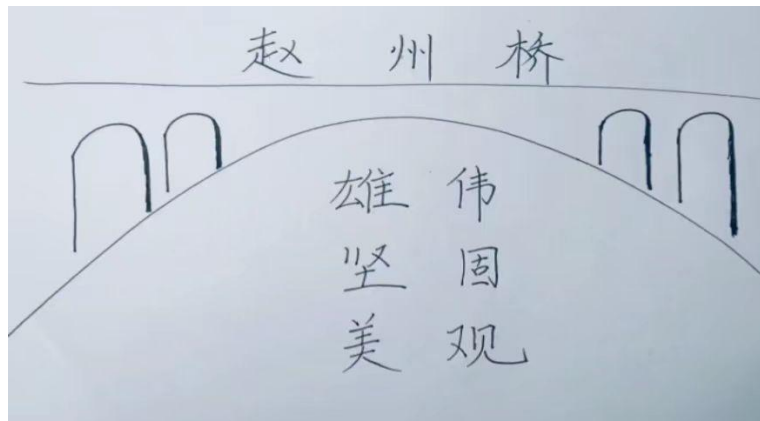 赵州桥
雄伟
坚固
美观